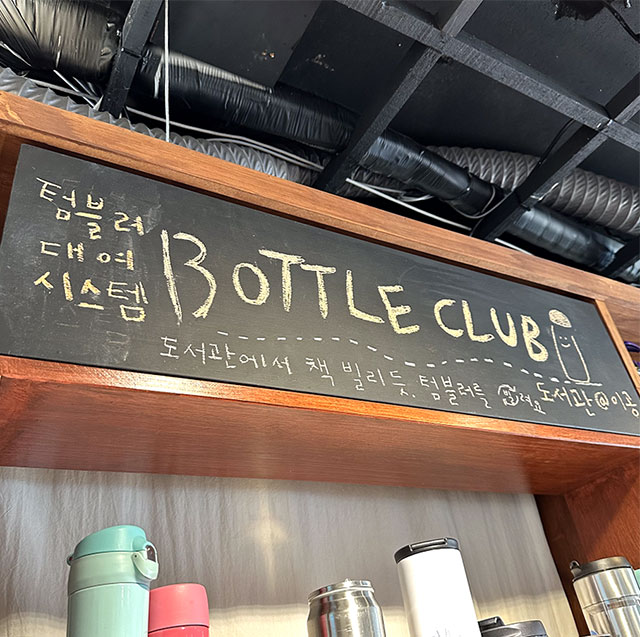 텀블러
대여
시스템
BOTTLE CLUB
도서관에서 책 빌리듯, 텀블러를 빌려요 도서관@이공